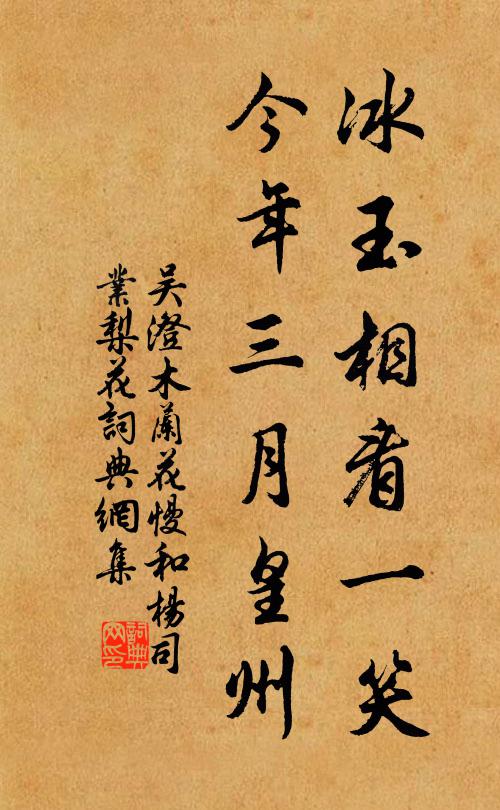 冰玉相看一笑
今年三月皇州
吴澄木蘭花慢和楊司
業梨花詞典網集
詞典
网印